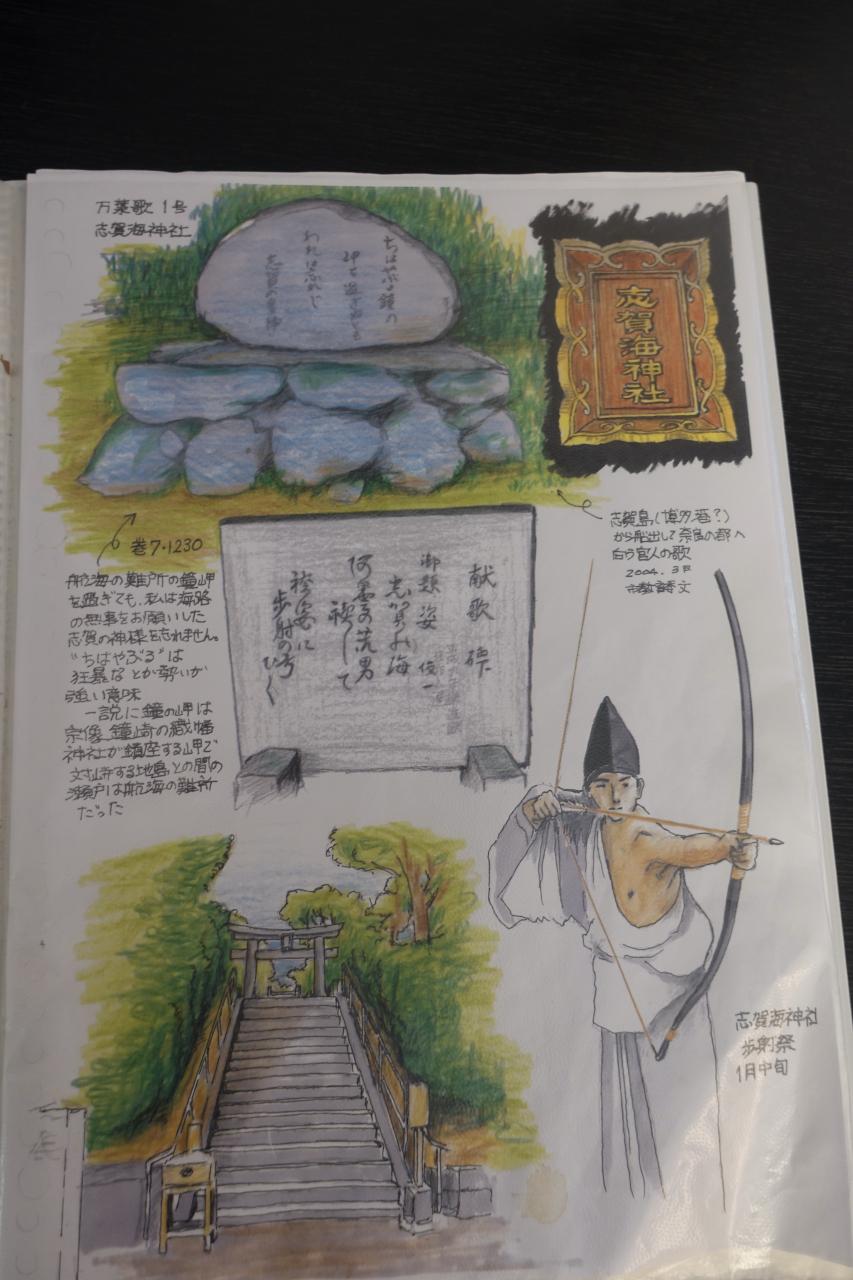 万葉歌 1号
志賀海神社
ちはやぶる鐘の
岬を過ぎぬとも
われは忘れじ
志賀の皇神
志賀海神社
巻7・1230
航海の難所の鐘岬
を過ぎても、私は海路
の無事をお願いした
志賀の神様を忘れません。
"ちはやぶる"は
狂暴なとか勢いが
強い意味
一説に鐘の岬は
宗像、鐘崎の織幡
神社が鎮座する岬で
文 する地島との間の
瀬戸は航海の難所
だった
志賀島(博多港?)
から船出して奈良の都へ
向う官人の歌
2004.3月
市教 文
献歌碑
御題 姿 俊一
志賀の海
阿曇の荒男
禊して
袴姿に
歩射の弓
ひく
志賀海神社
歩射祭
1月中旬